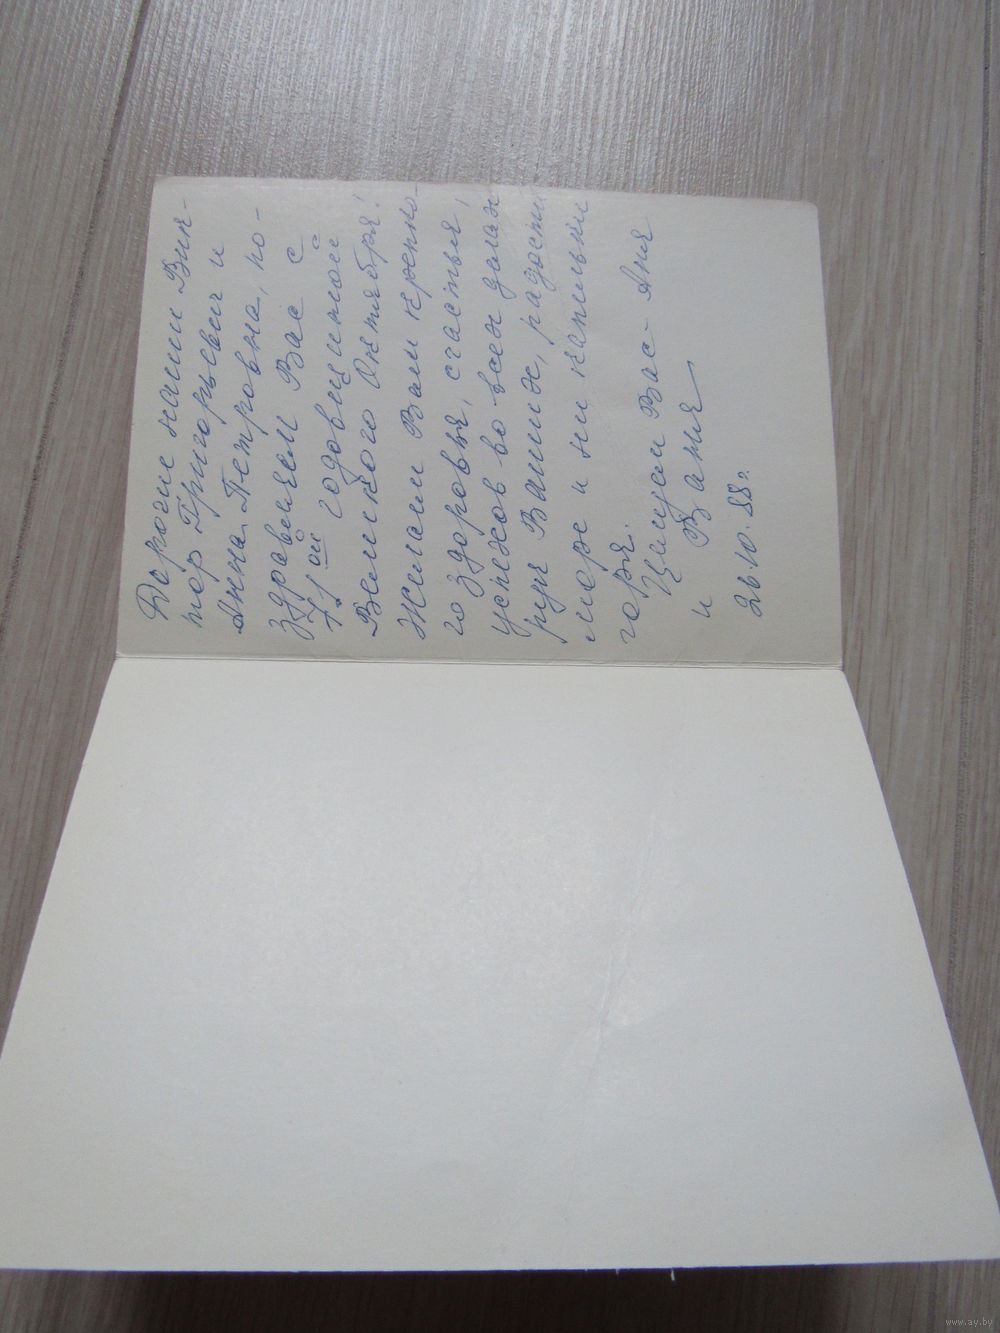 Дорогие наши Вик-
тор Григорьевич и
Анна Петровна, по-
здравляем Вас с
71ой годовщиной
Великого Октября!
Желаем Вам крепко-
го здоровья, счастья,
успехов во всех делах
Ваших, радости
море и ни капельки
горя.
Целуем Вас - Аня
и Ваня
26.10.88г.
www.ay.by